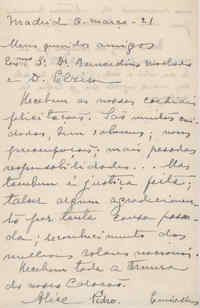 Madrid 8-março-21
Meus queridos amigos
Exmos Sr. Dr. Bernardino Machado
e D. Elzira
Recebam as nossas cordiais
felicitações. São muitos cui-
dados, bem sabemos; novas
preocupações, mais pesadas
responsabilidades... Mas
tambem é justiça feita;
talvez algum agradecimen-
to por tanta cousa passa-
da; reconhecimento dos
melhores valores nacionais.
Recebam toda a ternura
do nosso coração.
Alice Pedro.